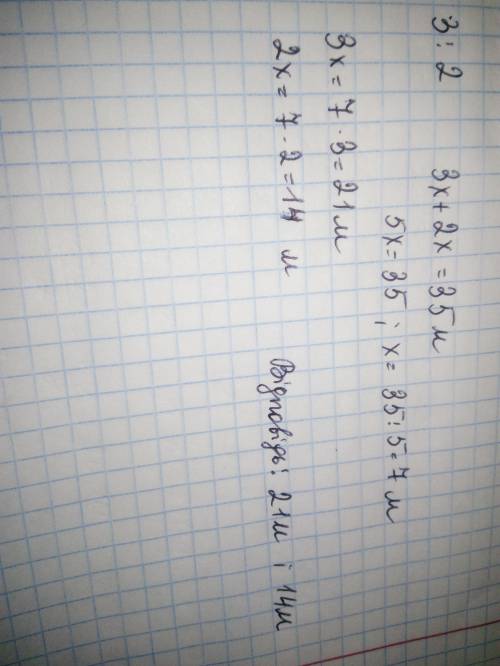 3:2 3x + 2x = 35 м
5x = 35 ; x = 35:5=7 м
3x = 7 · 3 = 21 м
2x = 7 · 2 = 14 м
Відповідь: 21м і 14м